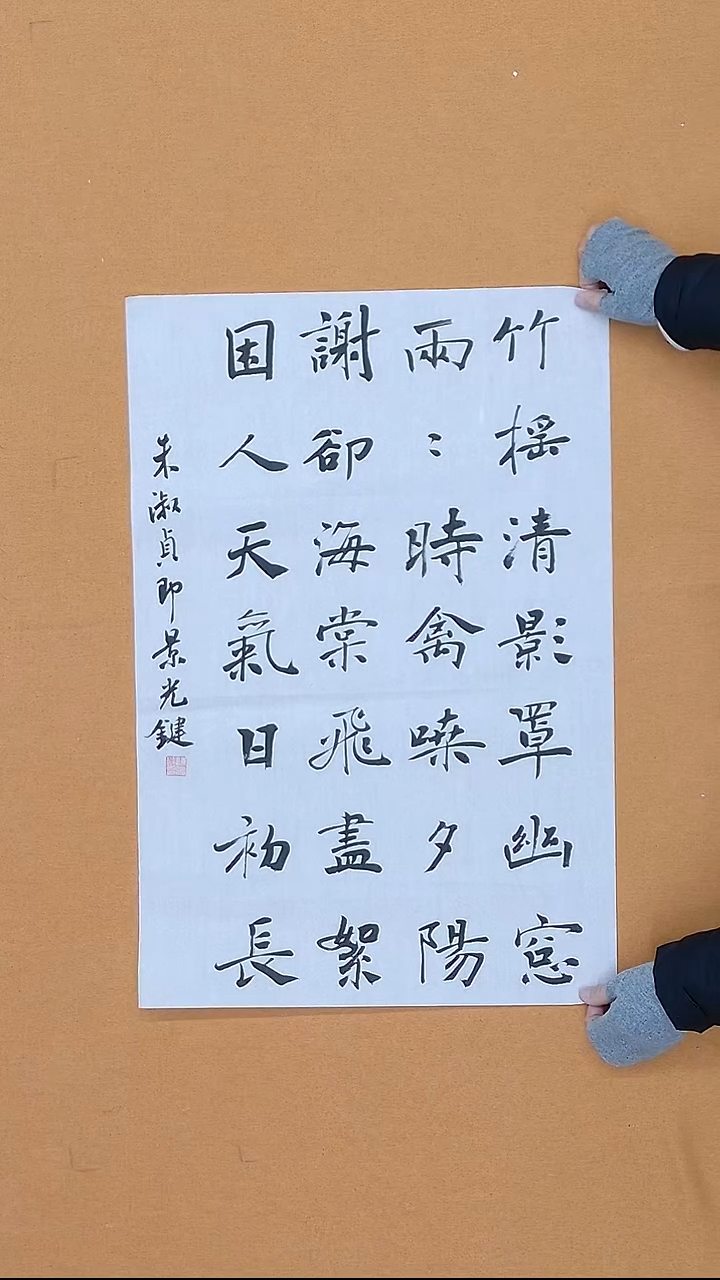 竹榣清影罩幽窓
兩〻時禽噪夕陽
謝卻海棠飛盡絮
困人天氣日初長
朱淑貞即景光鍵